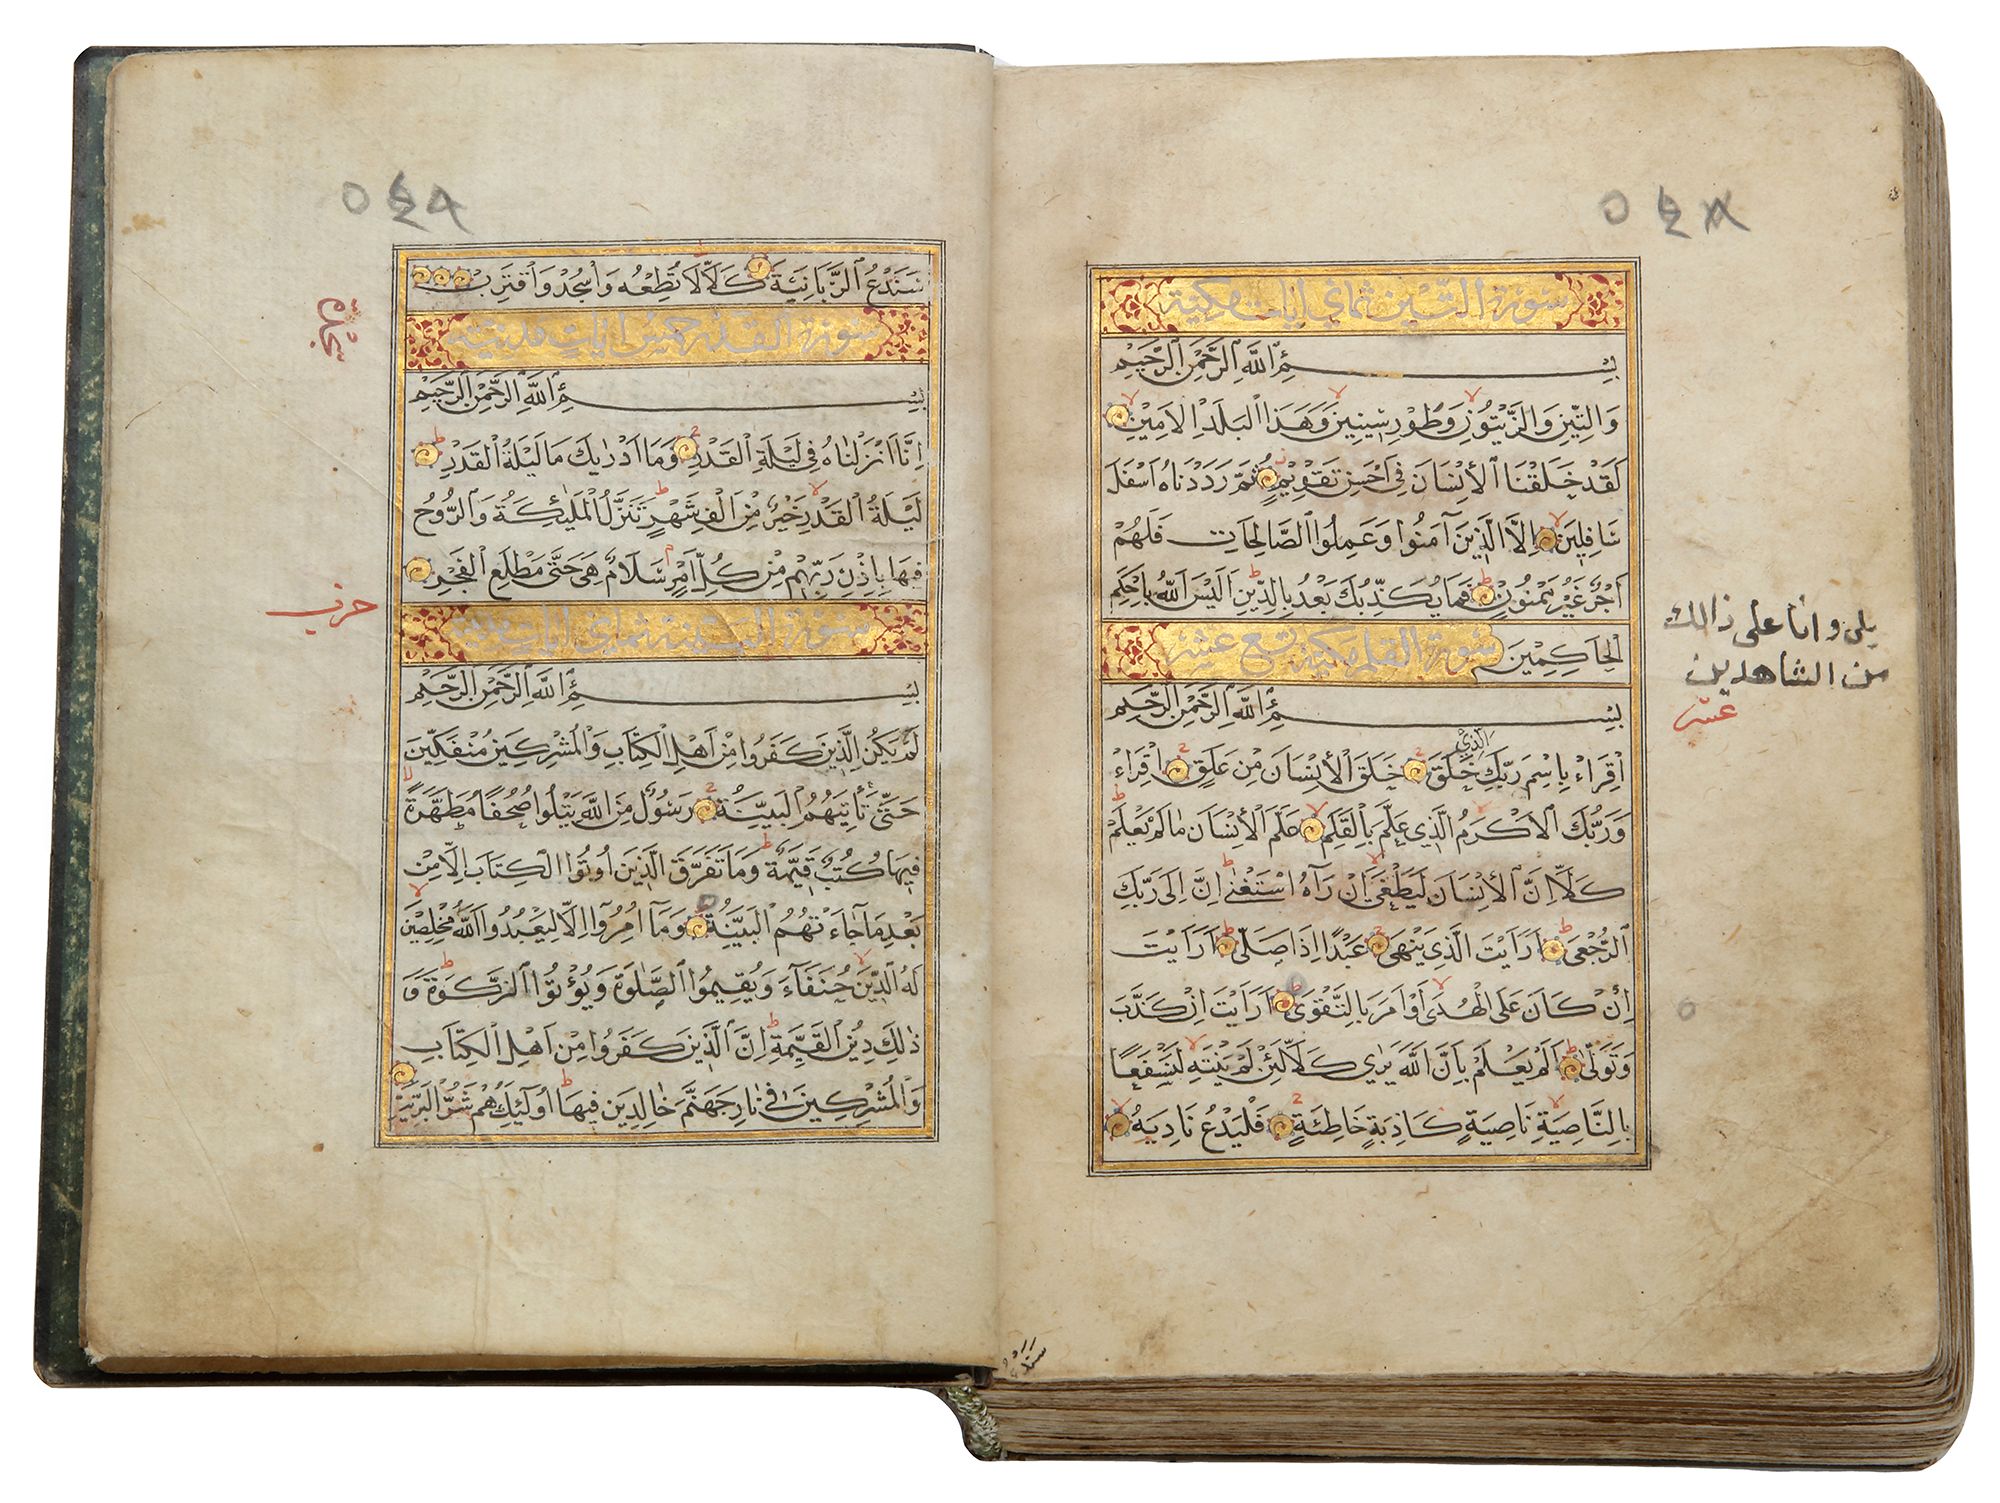 سورة التين ثماني ايات مكية
بسم الله الرحمن الرحيم
وَالتِّينِ وَالزَّيْتُونِ وَطُورِ سِينِينَ وَهَذَا الْبَلَدِ الْاَمِينِ
لَقَدْ خَلَقْنَا الْاِنْسَانَ فِي اَحْسَنِ تَقْوِيمٍ ثُمَّ رَدَدْنَاهُ اَسْفَلَ
سَافِلِينَ اِلَّا الَّذِينَ آمَنُوا وَعَمِلُوا الصَّالِحَاتِ فَلَهُمْ
اَجْرٌ غَيْرُ مَمْنُونٍ فَمَا يُكَذِّبُكَ بَعْدُ بِالدِّينِ اَلَيْسَ اللَّهُ بِاَحْكَمِ
الْحَاكِمِينَ سورة القلم مكية تسع عشر
بسم الله الرحمن الرحيم
الذي
اِقْرَاءْ بِاِسْمِ رَبِّكَ خَلَقَ خَلَقَ الْاِنْسَانَ مِنْ عَلَقٍ اِقْرَاءْ
وَرَبُّكَ الْاَكْرَمُ الَّذِي عَلَّمَ بِالْقَلَمِ عَلَّمَ الْاِنْسَانَ مَا لَمْ يَعْلَمْ
كَلَّا اِنَّ الْاِنْسَانَ لَيَطْغَى اَنْ رَآهُ اسْتَغْنَى اِنَّ اِلَى رَبِّكَ
الرُّجْعَى اَرَاَيْتَ الَّذِي يَنْهَى عَبْدًا اِذَا صَلَّى اَرَاَيْتَ
اِنْ كَانَ عَلَى الْهُدَى اَوْ اَمَرَ بِالتَّقْوَى اَرَاَيْتَ اِنْ كَذَّبَ
وَتَوَلَّى اَلَمْ يَعْلَمْ بِاَنَّ اللَّهَ يَرَى كَلَّا لَئِنْ لَمْ يَنْتَهِ لَنَسْفَعًا
بِالنَّاصِيَةِ نَاصِيَةٍ كَاذِبَةٍ خَاطِئَةٍ فَلْيَدْعُ نَادِيَهُ
بلى وانا على ذالك
من الشاهدين
عشر
سندع
٥٤٨
سَنَدْعُ الزَّبَانِيَةَ كَلَّا لَا تُطِعْهُ وَاسْجُدْ وَاقْتَرِبْ
سورة القدر خمس ايات مدنية
بسم الله الرحمن الرحيم
اِنَّا اَنْزَلْنَاهُ فِي لَيْلَةِ الْقَدْرِ وَمَا اَدْرٰيكَ مَا لَيْلَةُ الْقَدْرِ
لَيْلَةُ الْقَدْرِ خَيْرٌ مِنْ اَلْفِ شَهْرٍ تَنَزَّلُ الْمَلٰئِكَةُ وَالرُّوحُ
فِيهَا بِاِذْنِ رَبِّهِمْ مِنْ كُلِّ اَمْرٍ سَلَامٌ هِيَ حَتَّى مَطْلَعِ الْفَجْرِ
سورة البينة ثماني ايات مدنية
بسم الله الرحمن الرحيم
لَمْ يَكُنِ الَّذِينَ كَفَرُوا مِنْ اَهْلِ الْكِتَابِ وَالْمُشْرِكِينَ مُنْفَكِّينَ
حَتَّى تَاْتِيَهُمُ الْبَيِّنَةُ رَسُولٌ مِنَ اللَّهِ يَتْلُوا صُحُفًا مُطَهَّرَةً
فِيهَا كُتُبٌ قَيِّمَةٌ وَمَا تَفَرَّقَ الَّذِينَ اُوتُوا الْكِتَابَ اِلَّا مِنْ
بَعْدِ مَا جَاءَتْهُمُ الْبَيِّنَةُ وَمَا اُمِرُوا اِلَّا لِيَعْبُدُوا اللَّهَ مُخْلِصِينَ
لَهُ الدِّينَ حُنَفَاءَ وَيُقِيمُوا الصَّلٰوةَ وَيُؤْتُوا الزَّكٰوةَ وَ
ذٰلِكَ دِينُ الْقَيِّمَةِ اِنَّ الَّذِينَ كَفَرُوا مِنْ اَهْلِ الْكِتَابِ
وَالْمُشْرِكِينَ فِي نَارِ جَهَنَّمَ خَالِدِينَ فِيهَا اُولٰئِكَ هُمْ شَرُّ الْبَرِيَّةِ
سجدة
حزب